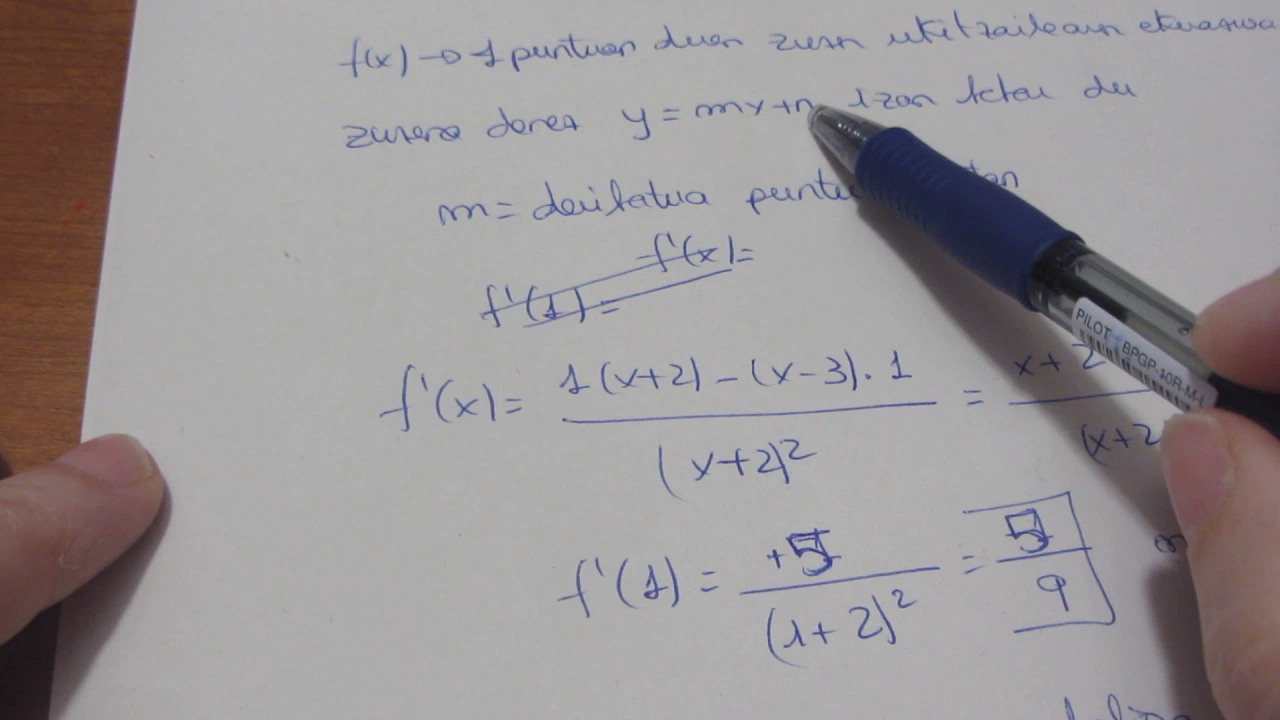 f(x) → 1 puntuan duen zuzen ukitzailearen ekuazioa
zuzena denez y = mx+n izan behar du
m = deribatua puntu
f'(x)=
f'(1)=
f'(x) = 1(x+2) - (x-3)·1 / (x+2)² = x+2 / (x+2)
PILOT BPGP-10R-M-L
f'(1) = +5 / (1+2)² = 5/9